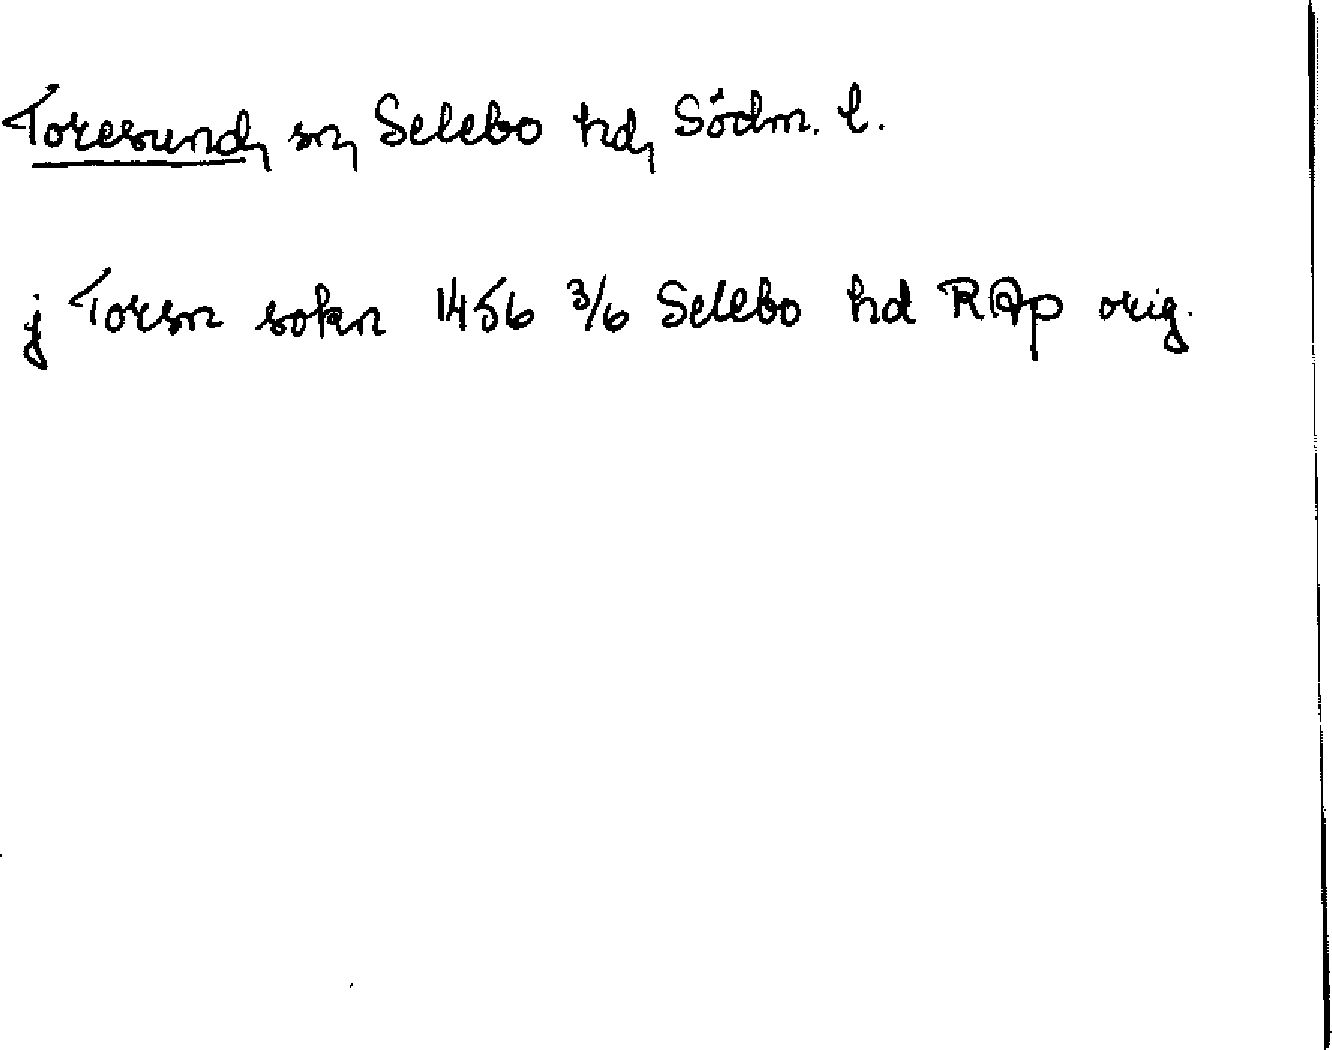 Toresund, sn, Selebo hd, Södm. l.
j Toresn sokn 1456 3/6 Selebo hd RAp orig.